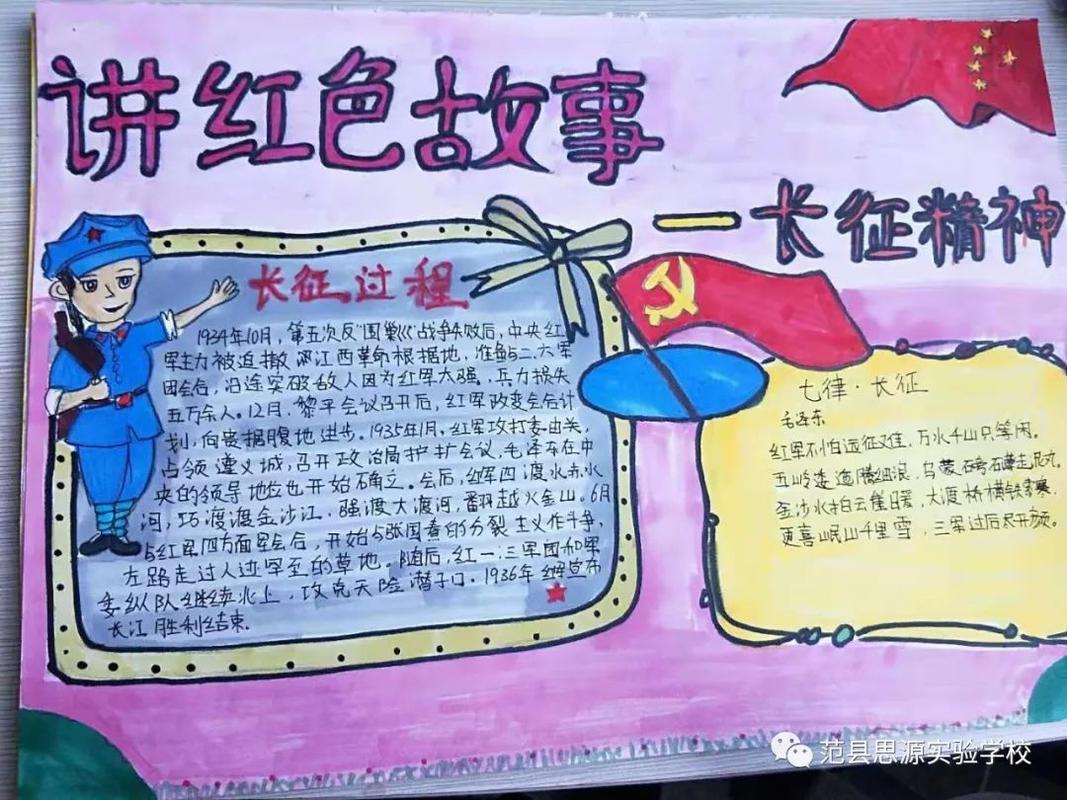 讲红色故事
一长征精神
长征过程
1934年10月，第五次反"围剿"战争失败后，中央红
军主力被迫撤离江西革命根据地，准备与二、六军
团会合，沿途突破敌人因为红军太强，兵力损失
五万余人。12月，黎平会议召开后，红军改变会合计
划，向贵据腹地进步。1935年1月，红军攻打娄山关，
占领遵义城，召开政治局护扩会议，毛泽东在中
央的领导地位也开始确立。会后，红军四渡水赤水
河，巧渡渡金沙江，强渡大渡河，翻越火金山。6月
与红军四方面军会合，开始与张国焘的分裂主义作斗争，
左路走过人迹罕至的草地。随后，红一、三军团和军
委纵队继续北上，攻克天险潜子口。1936年红军宣布
长江胜利结束.
七律·长征
毛泽东
红军不怕远征难，万水千山只等闲。
五岭逶迤腾细浪，乌蒙磅礴走泥丸。
金沙水拍云崖暖，大渡桥横铁索寒。
更喜岷山千里雪，三军过后尽开颜。
范县思源实验学校